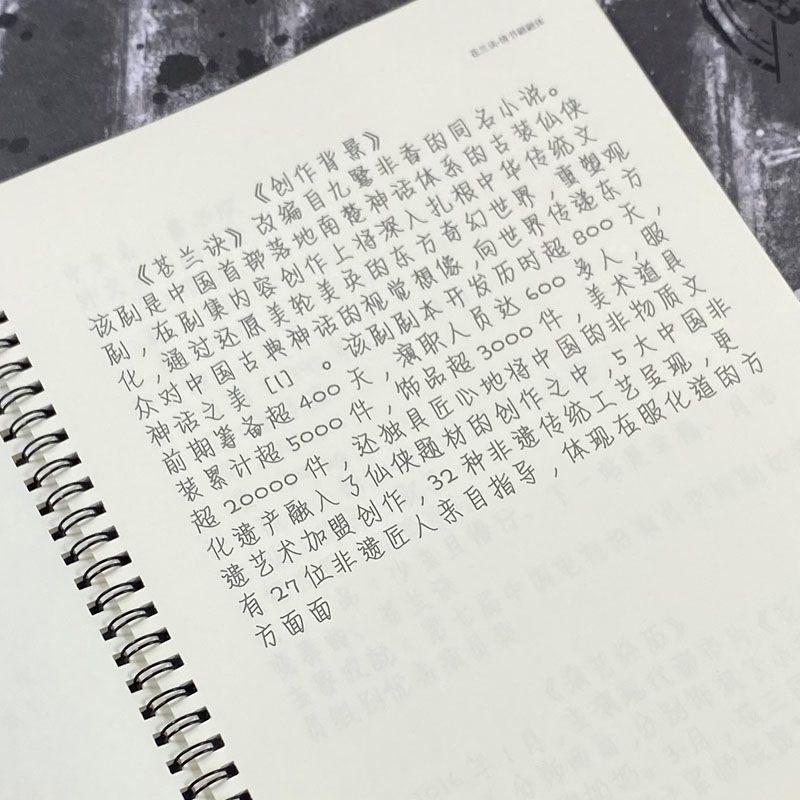 《创作背景》
《苍兰诀》改编自九鹭非香的同名小说。
该剧是中国首部落地南楚神话体系的古装仙侠
剧，在剧集内容创作上将深入扎根中华传统文
化，通过还原美轮美奂的东方奇幻世界，重塑观
众对中国古典神话的视觉想像，向世界传递东方
神话之美 [1] 。该剧剧本开发历时超 800 天，
前期筹备超 400 天，演职人员达 600 多人，服
装累计超 5000 件，饰品超 3000 件，美术道具
超 20000 件，还独具匠心地将中国的非物质文
化遗产融入了仙侠题材的创作之中，5 大中国非
遗艺术加盟创作，32 种非遗传统工艺呈现，更
有 27 位非遗匠人亲自指导，体现在服化道的方
方面面